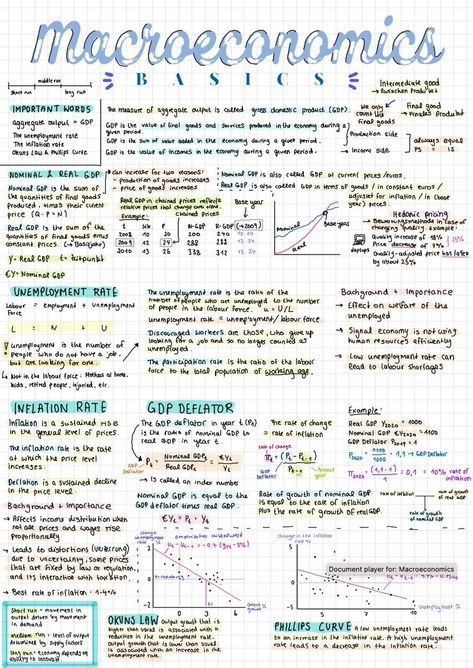 Macroeconomics
BASICS
middle run
short run
long run
Intermediate good
Final good
We only count the final goods
IMPORTANT WORDS
aggregate output = GDP
The unemployment rate
The inflation rate
Okuns Law & Phillips Curve
The measure of aggregate output is called gross domestic product (GDP).
GDP is the value of final goods and services produced in the economy during a given period.
GDP is the sum of value added in the economy during a given period.
GDP is the value of incomes in the economy during a given period.
Production side
Income side
always equal
PS = IS
NOMINAL & REAL GDP
Nominal GDP is the sum of the quantities of final goods produced, times their current price (Q·P=N)
Real GDP is the sum of the quantities of final goods times constant prices.
Y = Real GDP
€Y = Nominal GDP
Can increase for two reasons:
- production of goods increases
- price of goods increases
Real GDP in chained prices reflects relative prices that change over time.
Example
Base year
N-GDP
2008 10 20 200 240
2009 12 24 288 288
2010 13 26 338 312
Nominal GDP is also called GDP at current prices/euros.
Real GDP is also called GDP in terms of goods / in constant euros / adjusted for inflation / in (base year) prices
Base year
Nominal
Real
Hedonic pricing
Quality increase of 18%
Price decrease of 7%
25%
Quality-adjusted price has fallen by about 25%
UNEMPLOYMENT RATE
Labour Force = employment + Unemployment
L = N + U
Unemployment is the number of people who do not have a job, but are looking for one.
Not in the labour force: Mothers at home, kids, retired people, injured, etc.
The unemployment rate is the ratio of the number of people who are unemployed to the number of people in the labour force. u = U/L
unemployment rate = unemployment/labour force
Discouraged workers are those, who give up looking for a job and so no longer counted as unemployed.
The participation rate is the ratio of the labour force to the total population of working age.
Background + Importance
Effect on welfare of the unemployed
Signal economy is not using human resources efficiently
Low unemployment rate can lead to labour shortages
INFLATION RATE
Inflation is a sustained rise in the general level of prices.
The inflation rate is the rate at which the price level increases.
Deflation is a sustained decline in the price level.
Background + Importance
Affects income distribution when not all prices and wages rise proportionally
Leads to distortions due to uncertainty, some prices that are fixed by law or regulation, and its interaction with taxation.
Best rate of inflation 1-4%
Short run = movement in output driven by movement in demand
medium run = level of output determined by supply factors
GDP DEFLATOR
The GDP deflator in year t (Pt) is the ratio of nominal GDP to real GDP in year t.
GDP Deflator
Pt = Nominal GDPt / Real GDPt = €Yt / Yt
is called an index number
Nominal GDP is equal to the GDP deflator times real GDP.
€Yt = Pt · Yt
The rate of change = rate of inflation
rate of change
πt = (Pt - Pt-1) / Pt-1
Rate of growth of nominal GDP is equal to the rate of inflation plus the rate of growth of real GDP
Example:
Real GDP Y2020 = 1000
Nominal GDP €Y2020 = 1100
GDP Deflator P2019 = 1
P2020 = 1100/1000 = 1,1
π2020 = (1,1-1)/1 = 0,1 = 10% rate of inflation
rate of inflation
rate of growth of real GDP
rate of growth of nominal GDP
change unemployment
Output growth
OKUNS LAW
Output growth that is higher than usual is associated with a reduction in the unemployment rate. Output growth that is lower than usual is associated with an increase in the unemployment rate.
Change in the inflation rate
Document player for: Macroeconomics
unemployment %
PHILLIPS CURVE
A low unemployment rate leads to an increase in the inflation rate. A high unemployment rate leads to a decrease in the inflation rate.